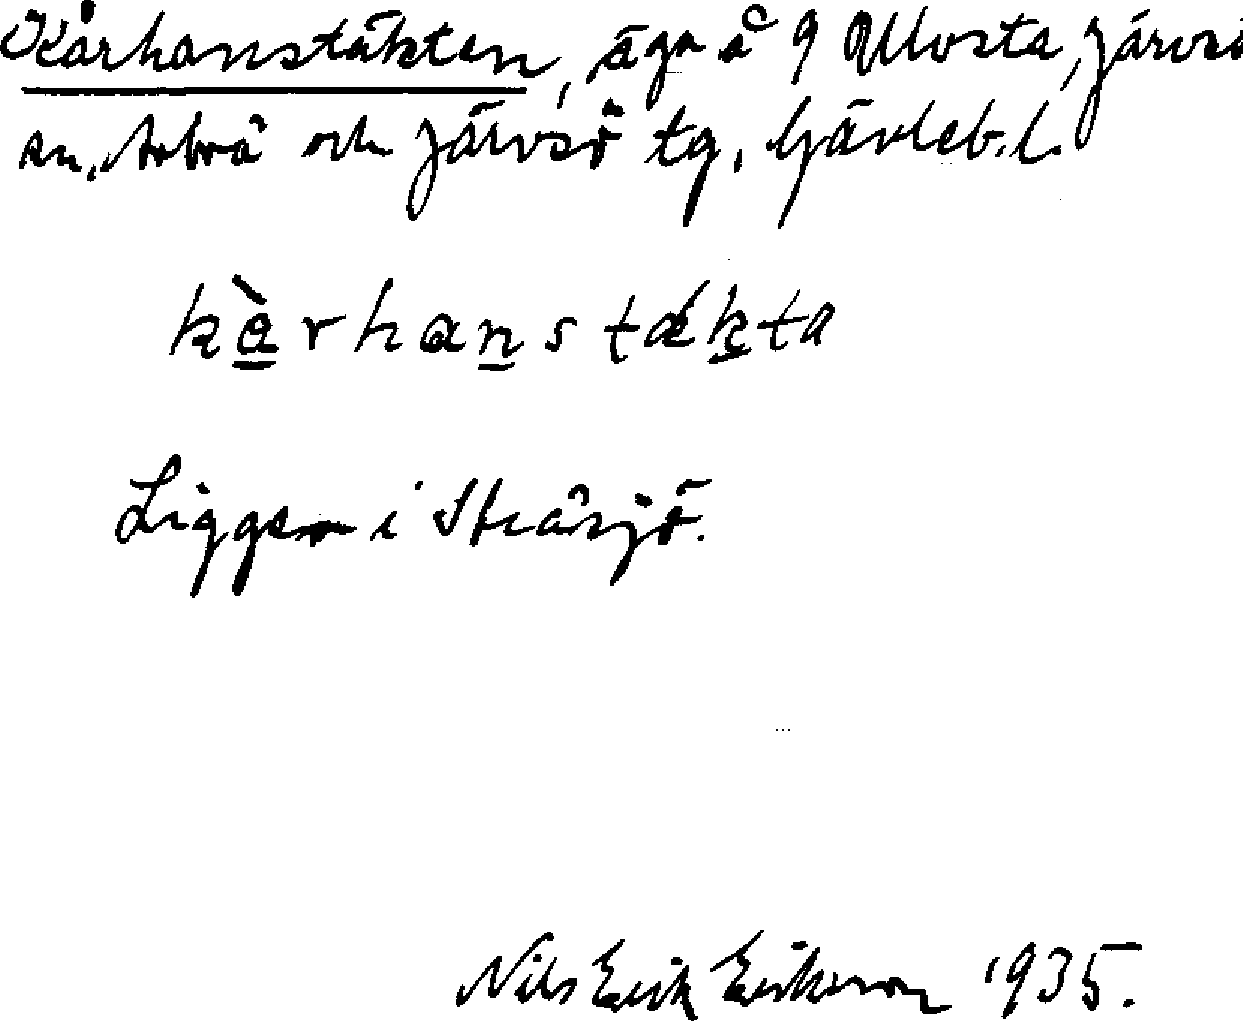 Kårhanstäkten, äga å 9 Ullvsta, Järvsö
sn, Arbrå och Järvsö tg, Gävleb. l.
kè̠rhan̠stäkta
Ligger i Stråsjö.
Nils Erik Erikson 1935.